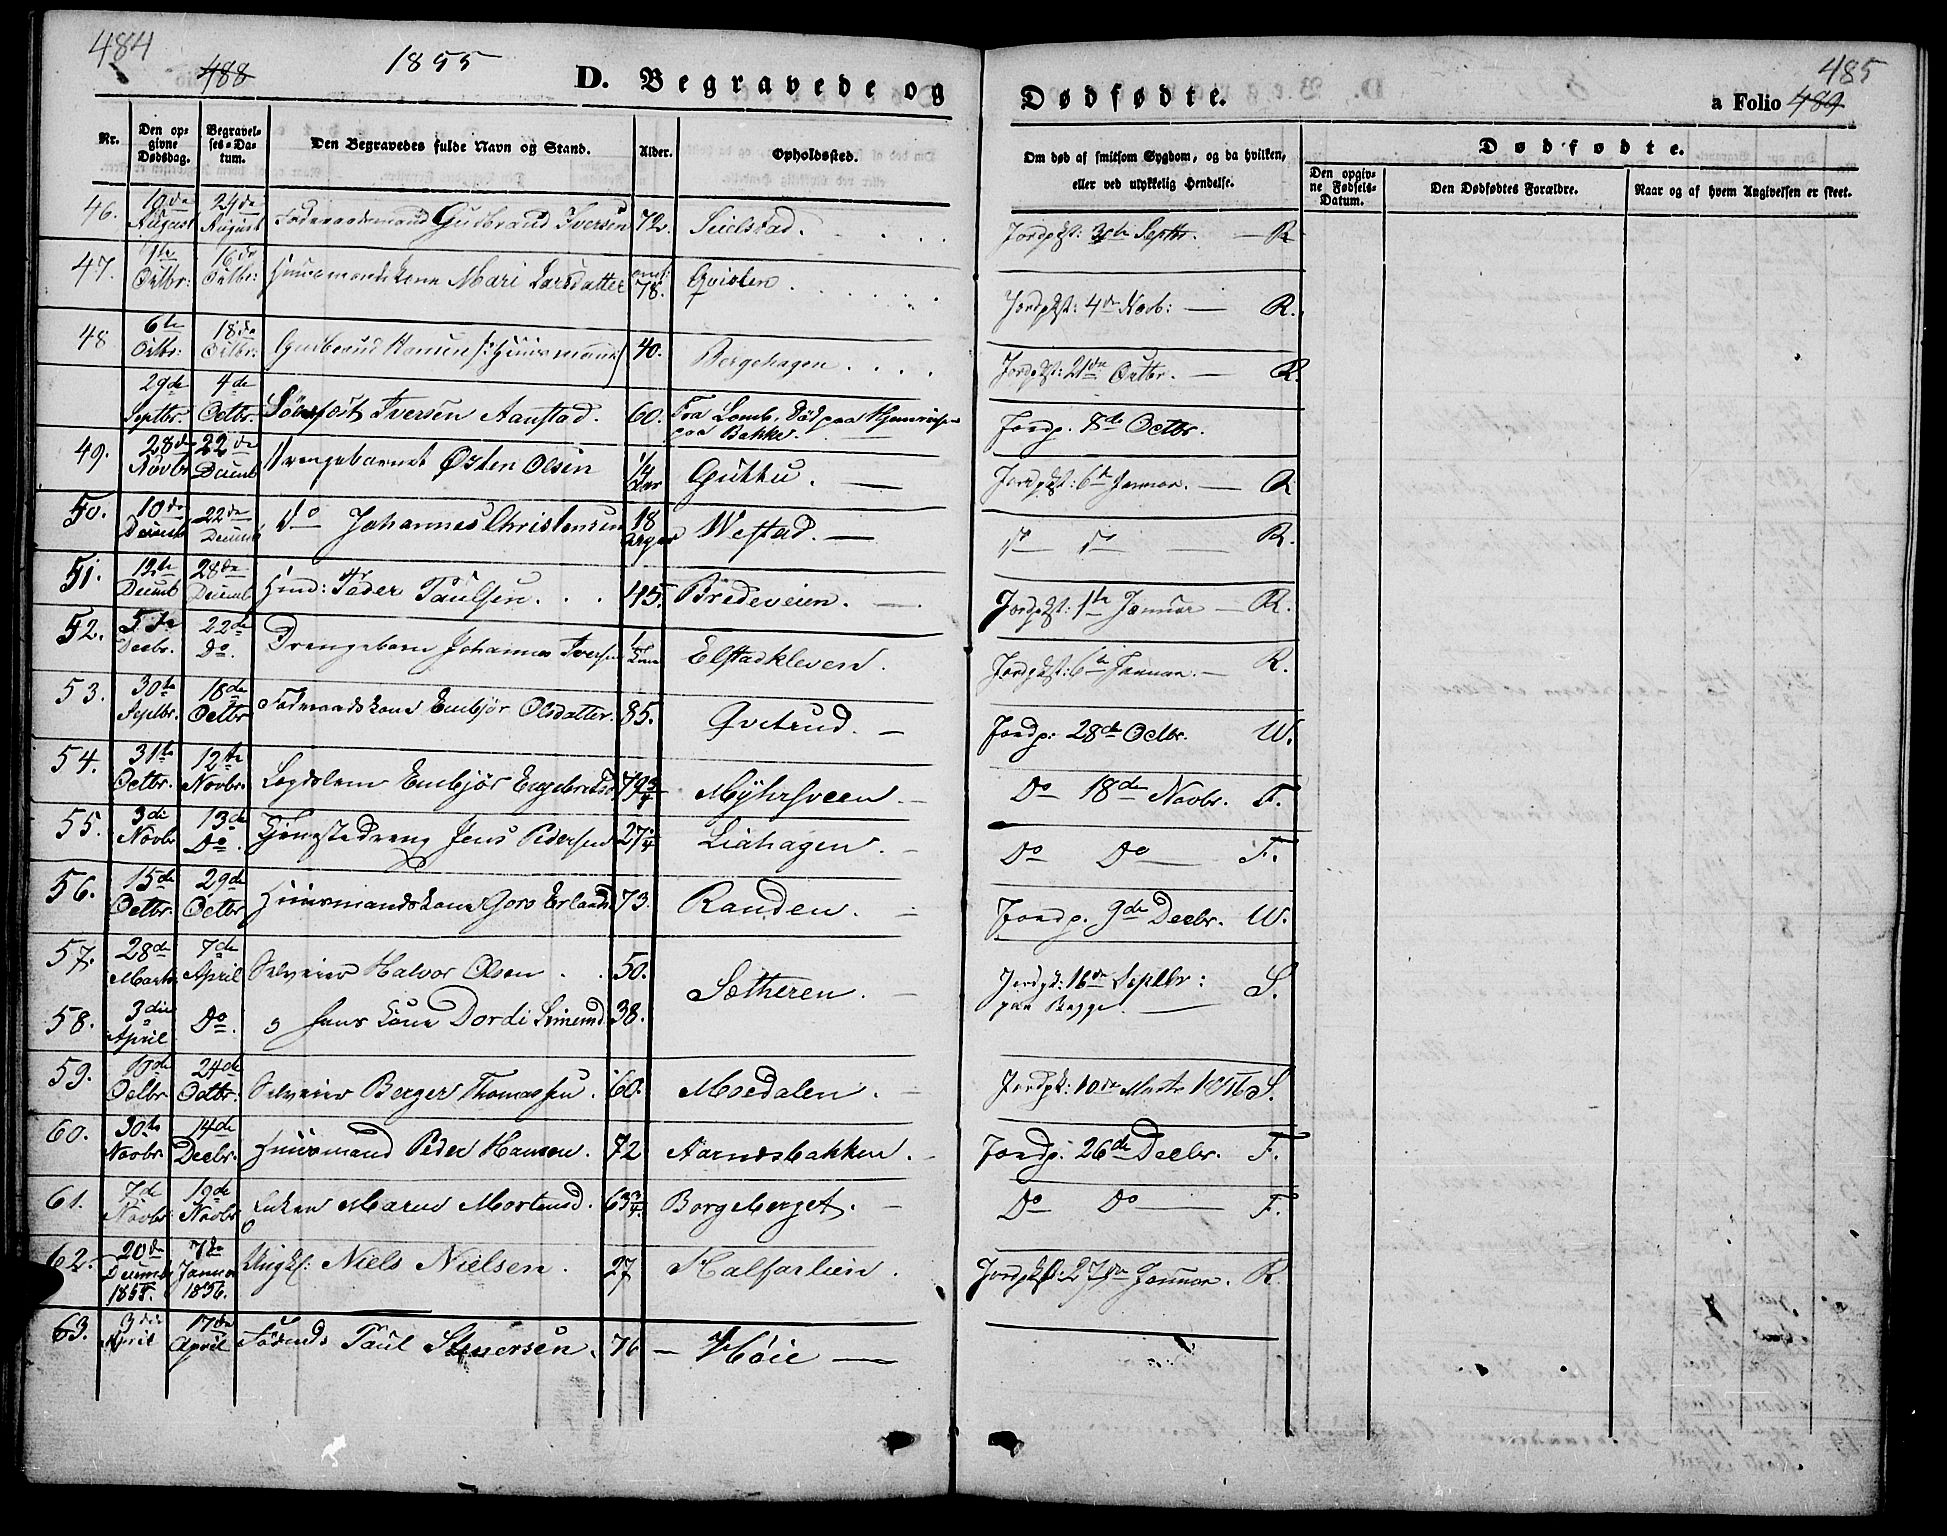 484
488
1855
D. Begravede og
Dødfødte.
485
a Folio 489
Nr.
Den opgivne Dødsdag.
Begravelses-Datum.
Den Begravedes fulde Navn og Stand.
Alder.
Opholdssted.
Om død af smitsom Sygdom, og da hvilken,
eller ved ulykkelig Hendelse.
Dødfødte.
Den opgivne Fødsels-Datum.
Den Dødfødtes Forældre.
Naar og af hvem Angivelsen er skeet.
46. 19de August 24de August Føderaadsmand Gudbrand Iversen 72. Seielstad. Jordpkst: Septbr. — R
47. 1te Octbr: 16de Octbr: Huusmandskone Mari Larsdatter 78. Qvislen. Jordpkst: 4de Novb: — R.
48 6te Octbr: 18de Octbr: Gudbrand Hansen Huusmand 40. Bergehagen. Jordpkst: 21de Octbr. — R.
29de Septbr. 4de Octbr. Iversen Aanstad. 60. Fra Lomb, død paa Hjemreise paa Bakke. Jordp. 8de Octbr.
49. 28de Novbr 22de Decemb Drengebarnet Østen Olsen 1/4 Aar Guttu. — Jordpkst: 6te Januar. — R
50. 10de Decemb 22de Decemb do Johannes Christensen 18 Wefstad. — do do — R.
51. 12te Decemb 28de Decemb Hmd: Peder Paulsen. 45. Bredeveien. — Jordpkst: 1te Januar — R.
52. 5te Decbr. 22de Do. Drengebarn Johannes Iversen Elstadkleven. Jordpkst: 6te Januar. — R.
53. 30te Septbr. 18de Octbr Føderaadskone Embjør Olsdatter. 85. Qvetrud. — Jordp: 28de Octbr. W.
54. 31te Octbr. 12te Novbr. Legdslem Embjør Engebretsd. 79 3/4 Myhrsveen. — Do 18de Novbr. F.
55. 3die Novbr 13de Do. Tjenestedreng Jens Pedersen 27 1/4 Liahagen. — Do Do — F.
56. 15de Octbr. 29de Octbr Huusmandskone Goro Erlands. 73. Randen. — Jordp. 9de Decbr. W.
57. 28de Marts 7de April Selveier Halvor Olsen. 50. Sætheren. — Jordpk: 16de Septbr: S.
paa Begge. —
58. 3die April Do. hans Kone Dordi 38.
59. 10de Octbr 24de Octbr. Selveier Berger Thomassen. 60. Moedalen. — Jordpk: 10de Marts 1856 S.
60. 30te Novbr. 14de Decbr. Huusmand Peder Hansen. 72 Aarnesbakken. — Jordp. 26de Decbr. F.
61. 7de Novbr 19de Novbr Enken Maren Mortensd. 63 3/4. Borgeberget. — Do Do — F.
62. 20de Decemb 1855. 7de Januar 1856. Ungkf: Niels Nielsen. 27 Kalfarlien. Jordpkst: 27de Januar. R.
63. 3die April 17de April Paul Steuersen. 76 — Høie —